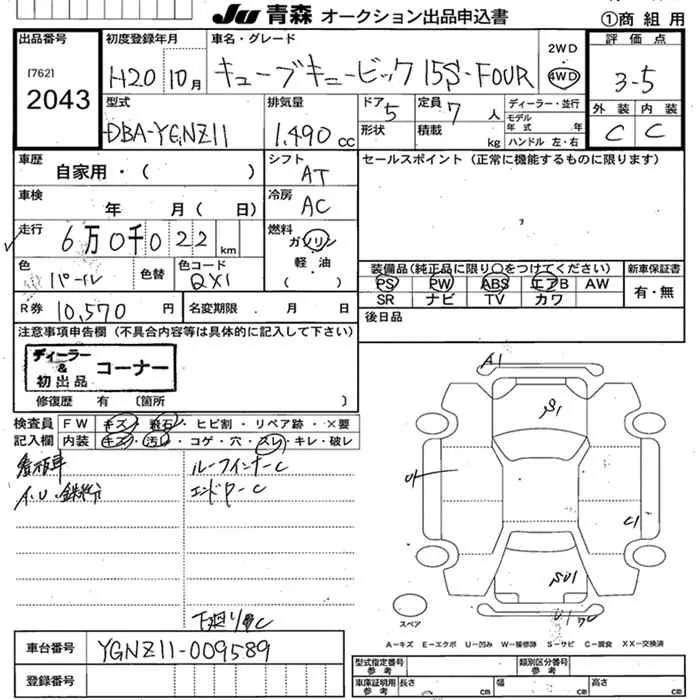 JU 青森 オークション出品申込書
①商組用
出品番号
[762]
2043
初度登録年月
H20 10月
車名・グレード
キューブキュービック 15S・FOUR
2WD
4WD
評価点
3-5
型式
DBA-YGNZ11
排気量
1,490 cc
ドア 5
定員 7 人
形状
積載 kg
ディーラー・並行
モデル年式 年
ハンドル 左・右
外装 内装
C C
車歴
自家用・( )
シフト
AT
セールスポイント (正常に機能するものに限ります)
車検
年 月 ( 日)
冷房
AC
走行
6万0千022 km
燃料
ガソリン
軽・油
( )
色
パール
色替
色コード
QX1
装備品(純正品に限り○をつけてください)
PS PW ABS エアB AW
SR ナビ TV カワ
新車保証書
有・無
R券 10,570 円
名変期限 ・ 月 日
後日品
注意事項申告欄 (不具合内容等は具体的に記入して下さい)
ディーラー & 初出品 コーナー
修復歴 有 〔箇所 〕
検査員記入欄
FW キズ・飛石・ヒビ割・リペア跡・×要
内装 キズ・汚れ・コゲ・穴・スレ・キレ・破レ
A.U.鉄粉
ルーフインナーC
エンドPーC
下廻りC
A1
S1
C1
SU1
スペア
A=キズ E=エクボ U=凹み W=補修跡 S=サビ C=腐食 XX=交換済
車台番号
YGNZ11-009589
登録番号
型式指定番号 参考
類別区分番号 参考
車庫証明用 参考
長さ cm
幅 cm
高さ cm